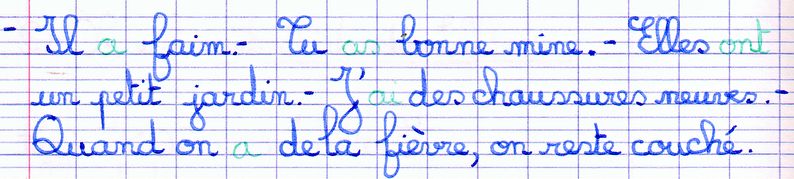 - Il a faim. - Tu as bonne mine. - Elles ont
un petit jardin. - J'ai des chaussures neuves. -
Quand on a de la fièvre, on reste couché.